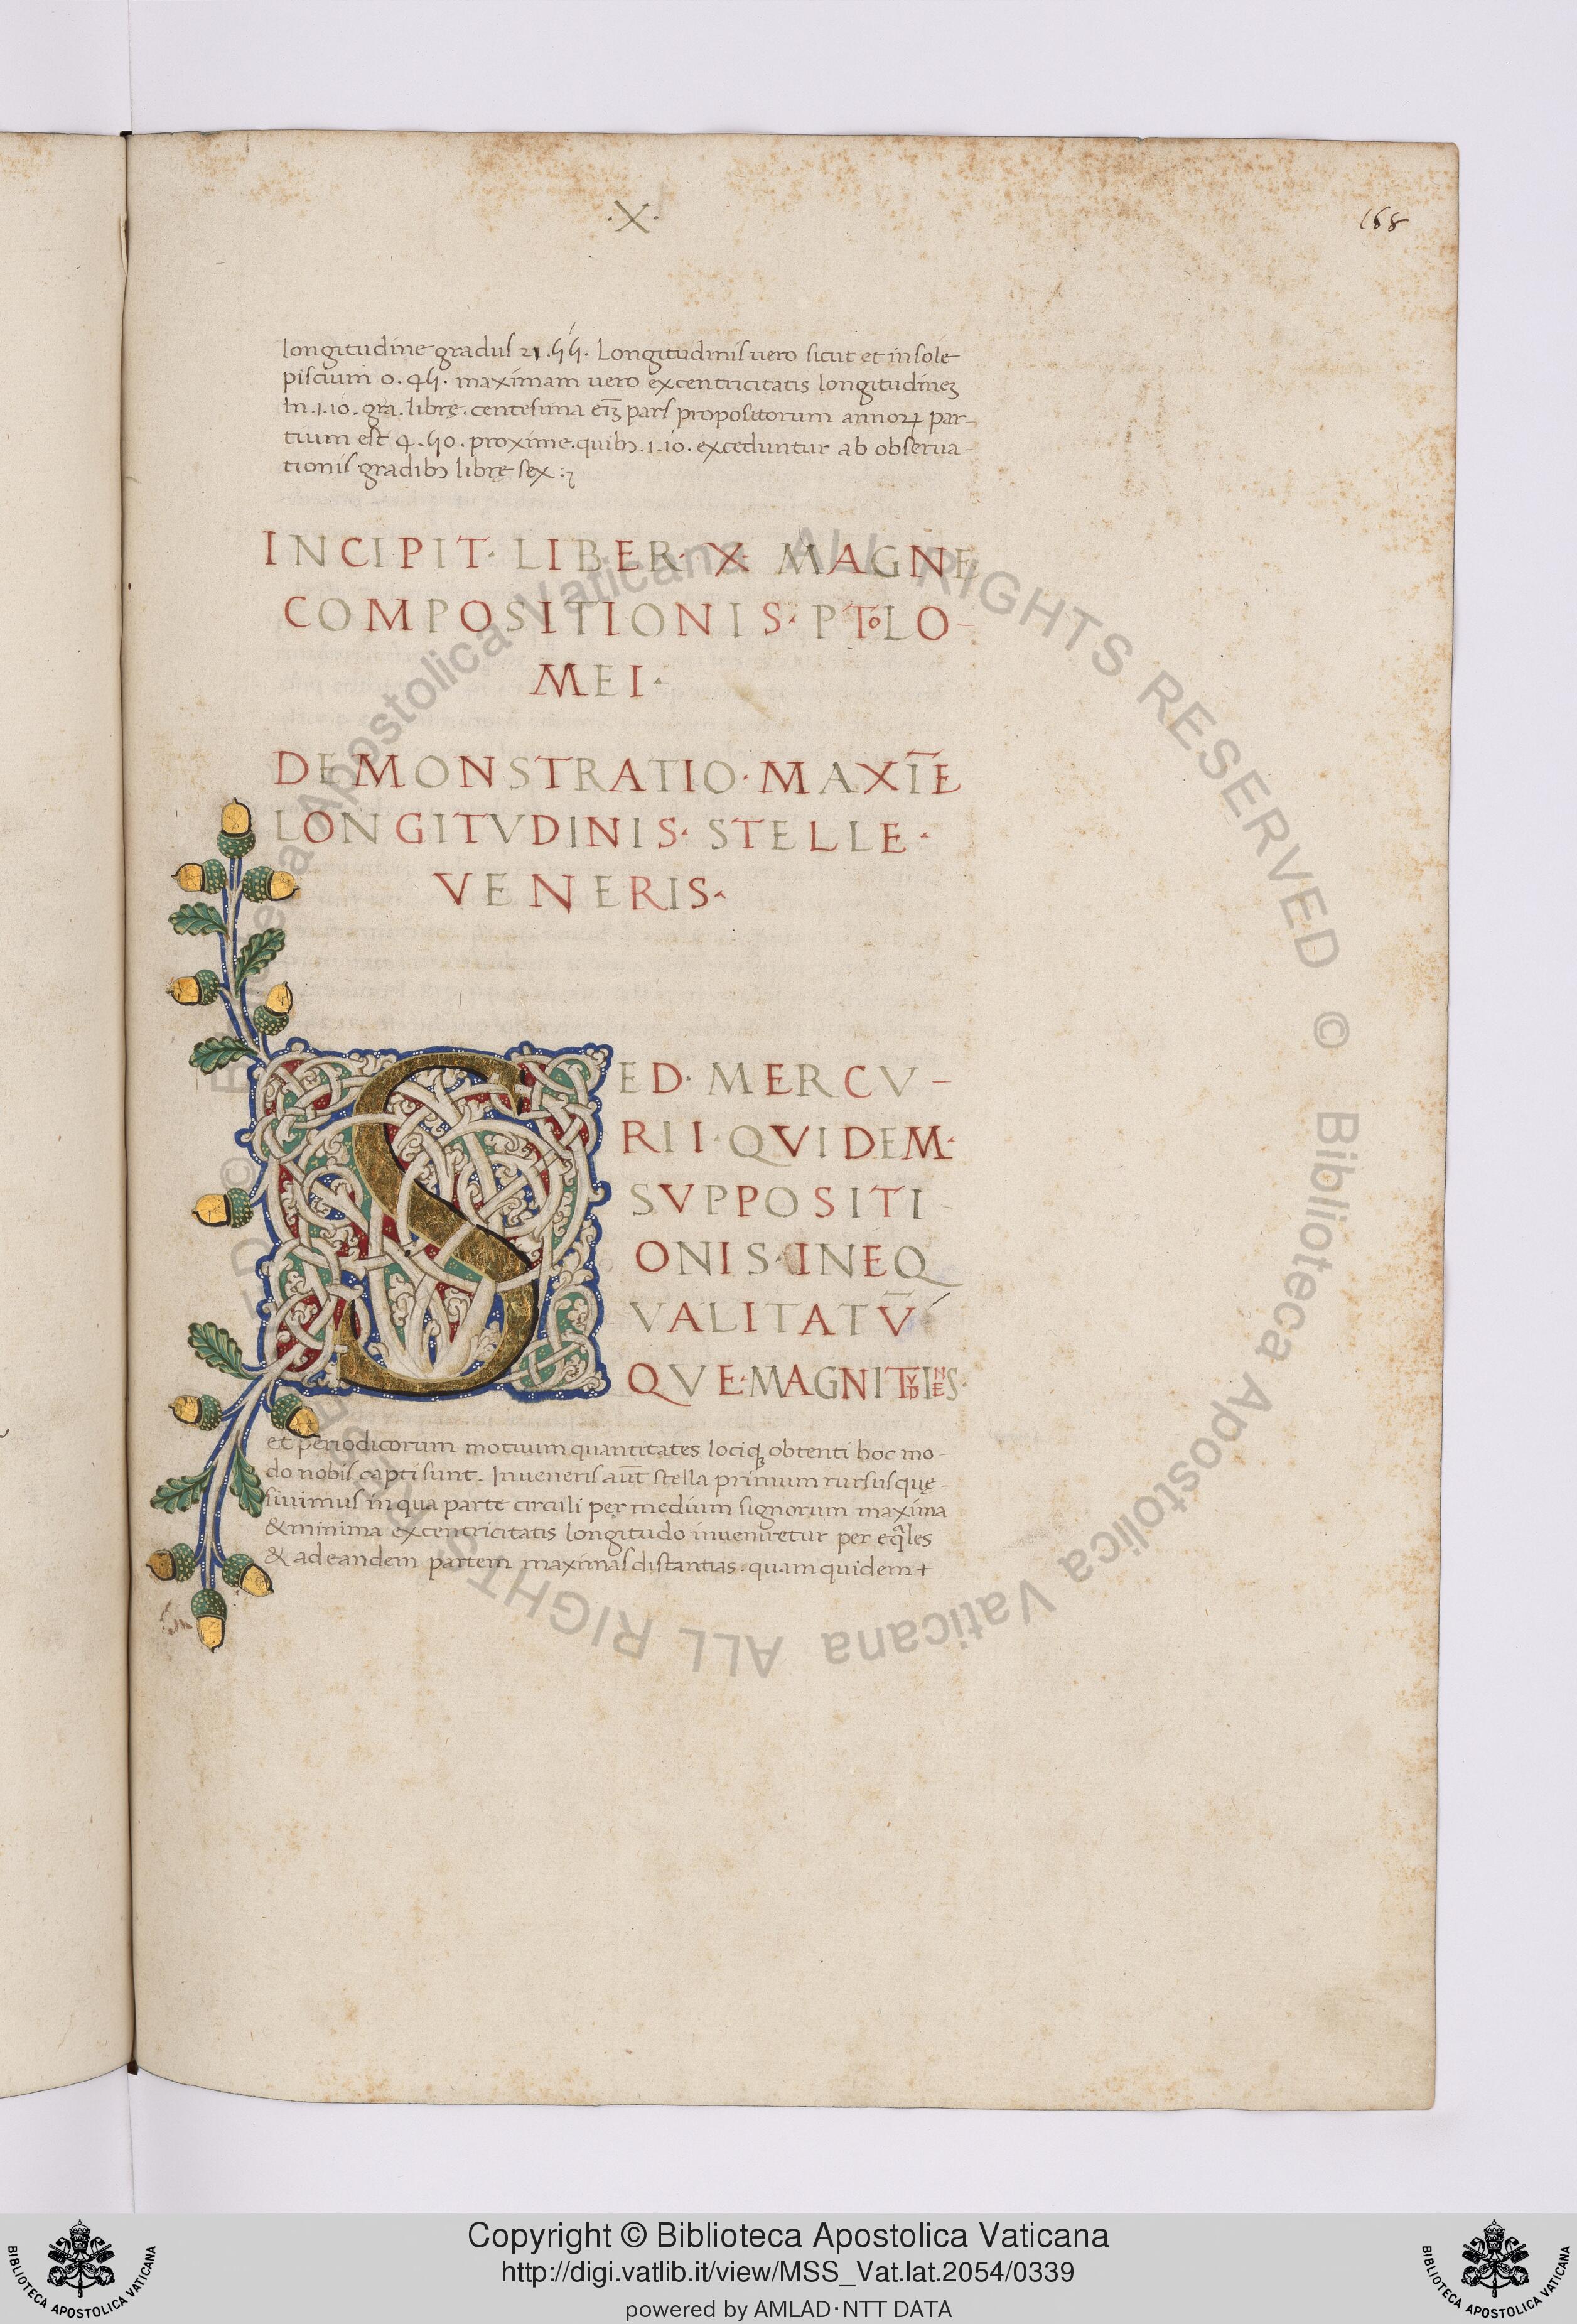 ·X·
168
longitudine gradus 21.55. Longitudinis uero sicut et in sole
piscium 0.45. maximam uero excentricitatis longitudineʒ
in .1.10. gra. librę. centesima eiʒ pars propositorum annoꝝ par-
tium est 4.50. proxime. quibꝫ .1.10. exceduntur ab obserua-
tionis gradibꝫ librę sex :⁊
INCIPIT· LIBER· X· MAGNE
COMPOSITIONIS· PToLO-
MEI·
DEMONSTRATIO· MAXIE̅
LONGITVDINIS· STELLE·
VENERIS·
SED· MERCV-
RII· QVIDEM·
SVPPOSITI-
ONIS· INEQ
VALITATV̅
QVE· MAGNITVDINES·
et periodicorum motuum quantitates lociqꝫ obtenti hoc mo-
do nobis capti sunt. In ueneris aut̅ stella primum rursus quę-
siuimus in qua parte circuli per medium signorum maxima
& minima excentricitatis longitudo inueniretur per eqͣles
& ad eandem partem maximas distantias. quam quidem +
© Biblioteca Apostolica Vaticana ALL RIGHTS RESERVED © Biblioteca Apostolica Vaticana ALL RIGHTS RESERVED
Copyright © Biblioteca Apostolica Vaticana
http://digi.vatlib.it/view/MSS_Vat.lat.2054/0339
powered by AMLAD·NTT DATA
BIBLIOTECA APOSTOLICA VATICANA
BIBLIOTECA APOSTOLICA VATICANA